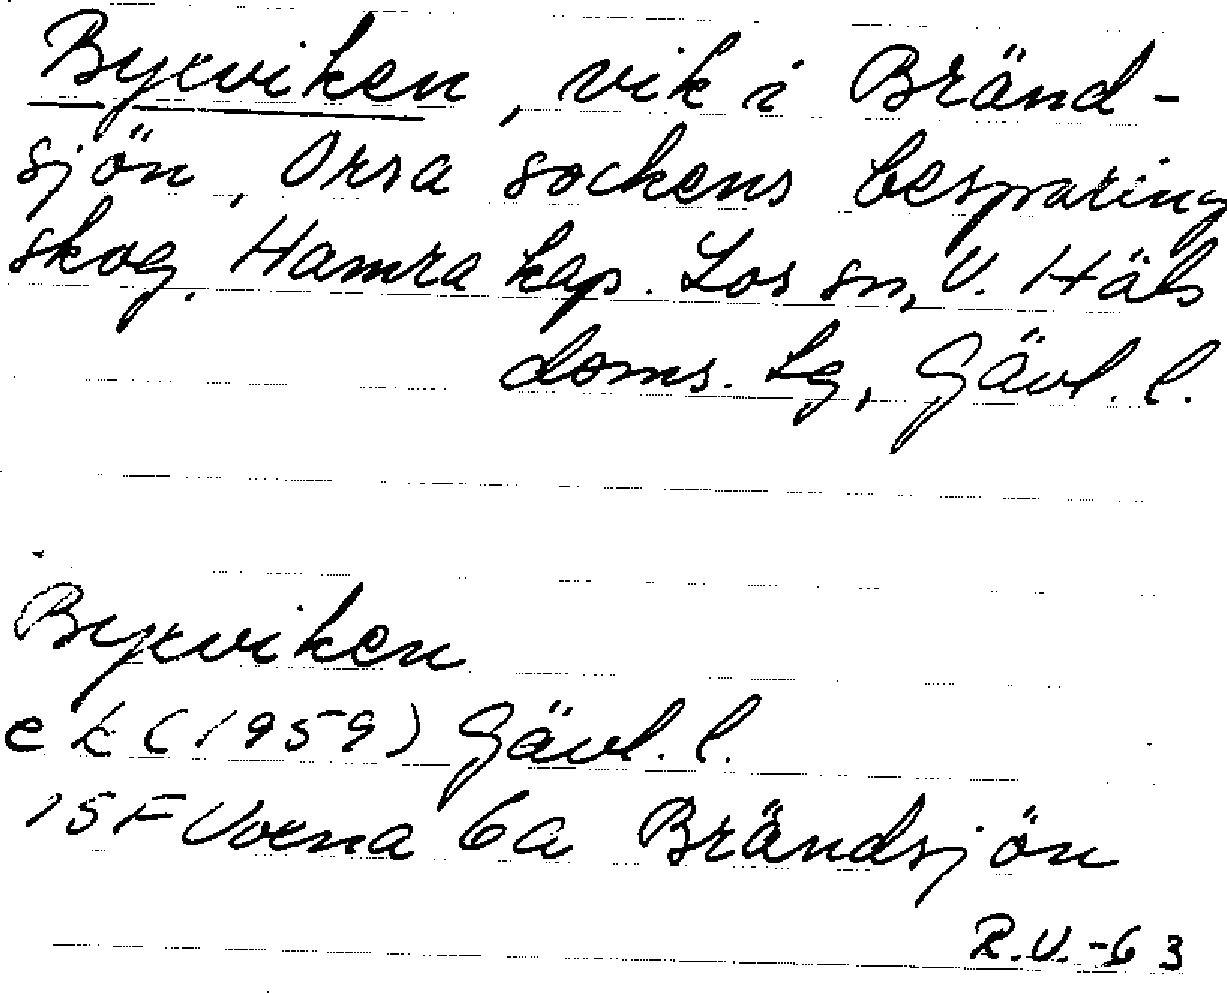 Byxviken, vik i Bränd-
sjön, Orsa sockens besparing
skog, Hamra kap. Los sn, V. Häls
doms. Lg, Gävl. l.
Byxviken
ek (1959) Gävl. l.
15F Voxna 6a Brändsjön
R.V.-63